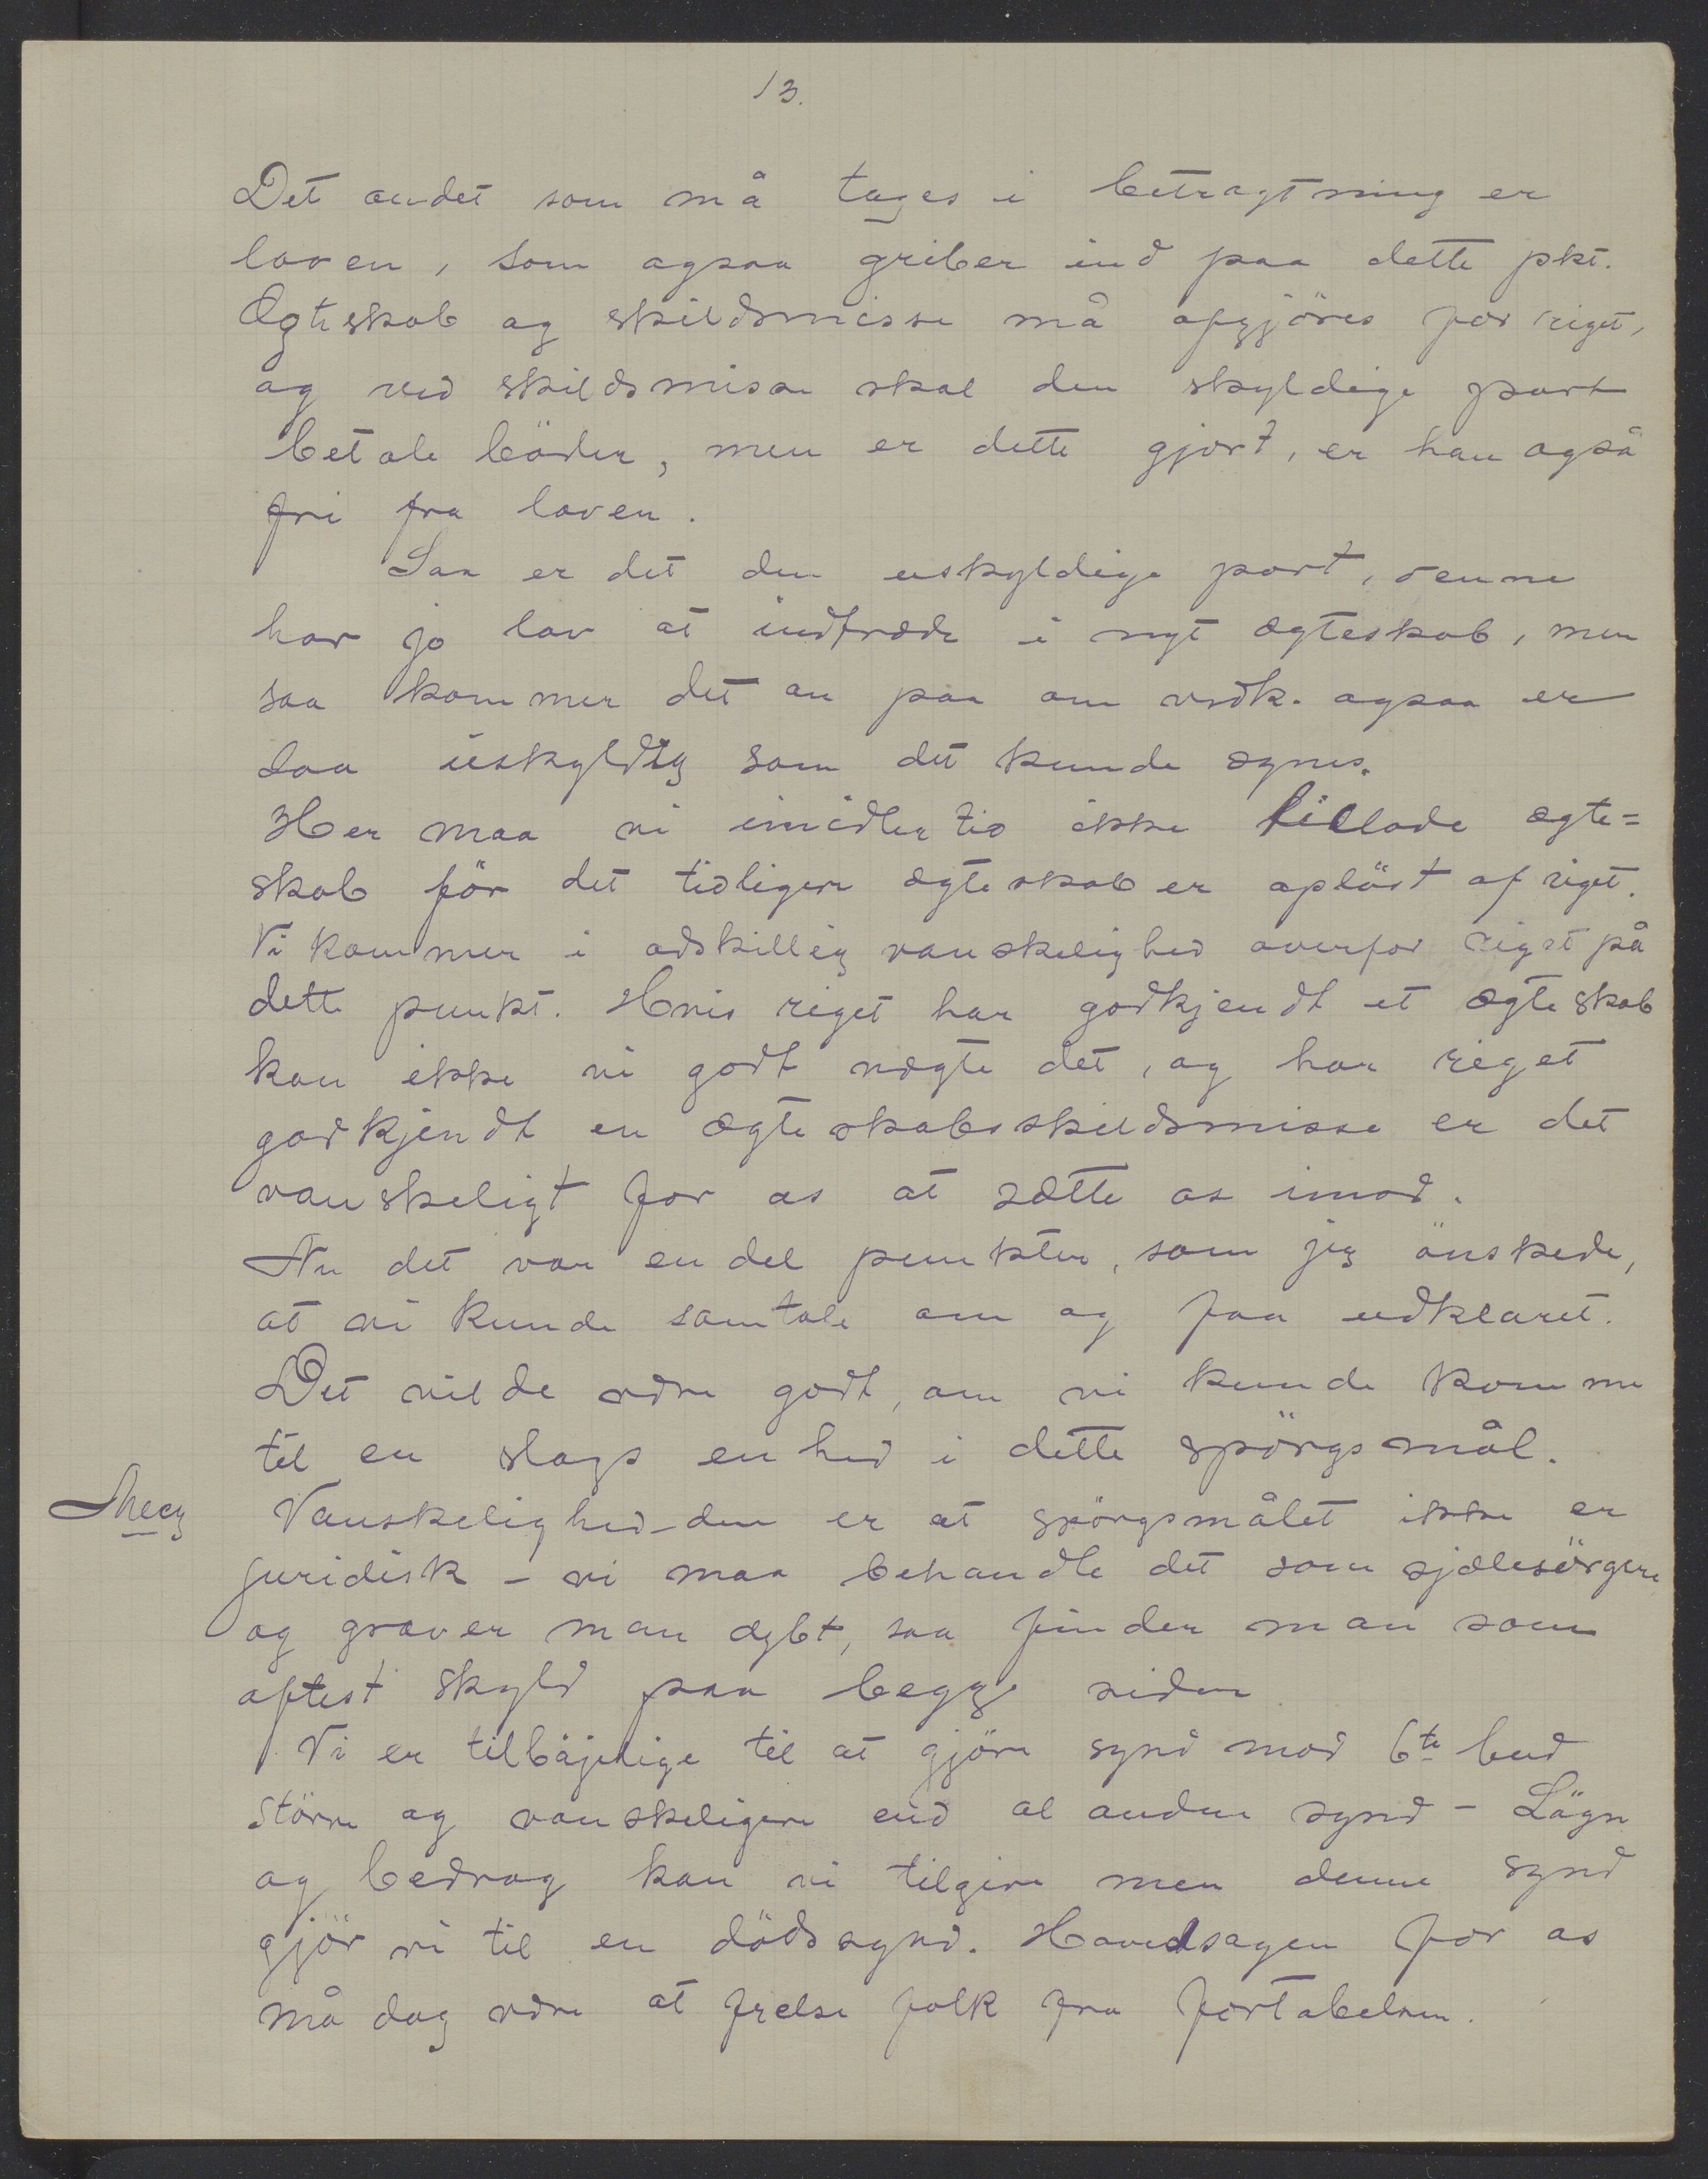 13.
Det andet som må tages i betragtning er
loven, som ogsaa griber ind paa dette pkt.
Ægteskab og skildsmisse må afgjöres for riget,
og ved skildsmisse skal den skyldige part
betale böder, men er dette gjort, er han også
fri fra loven.
Saa er det den uskyldige part, denne
har jo lov at indtræde i nyt ægteskab, men
saa kommer det an paa om vedk. ogsaa er
saa uskyldig som det kunde synes.
Her maa vi imidlertid ikke tillade ægte=
skab för det tidligere ægteskab er oplöst af riget.
Vi kommer i adskillig vanskelighed overfor riget på
dette punkt. Hvis riget har godkjendt et ægteskab
kan ikke vi godt nægte det, og har riget
godkjendt en ægteskabsskildsmisse er det
vanskeligt for os at sætte os imod.
Nu det var en del punkter, som jeg önskede,
at vi kunde samtale om og faa udklaret.
Det vilde være godt, om vi kunde komme
til en slags enhed i dette spörgsmål.
Vanskelighed-den er at spörgsmålet ikke er
juridisk - vi maa behandle det som sjælesörgere
og graver man dybt, saa finder man som
oftest skyld paa begge sider
Vi er tilböjelige til at gjöre synd mod 6te bud
större og vanskeligere end al anden synd - Lögn
og bedrag kan vi tilgive men denne synd
gjör vi til en dödssynd. Hovedsagen for os
må dog være at frelse folk fra fortabelsen.